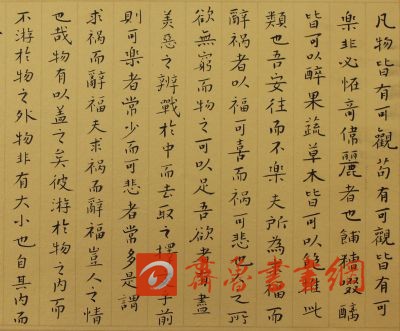 凡物皆有可觀苟有可觀皆有可
樂非必恠奇偉麗者也餔糟啜醨
皆可以醉果蔬草木皆可以飽推此
類也吾安往而不樂夫所為福而
辭祸者以福可喜而祸可悲也之所
欲無窮而物之可以足吾欲者盡
美惡之辨戰於中而去取之擇乎前
則可樂者常少而可悲者常多是謂
求祸而辭福夫求祸而辭福豈人之情
也哉物有以盖之矣彼游於物之内而
不游於物之外物非有大小也自其内而
齊魯書畫網